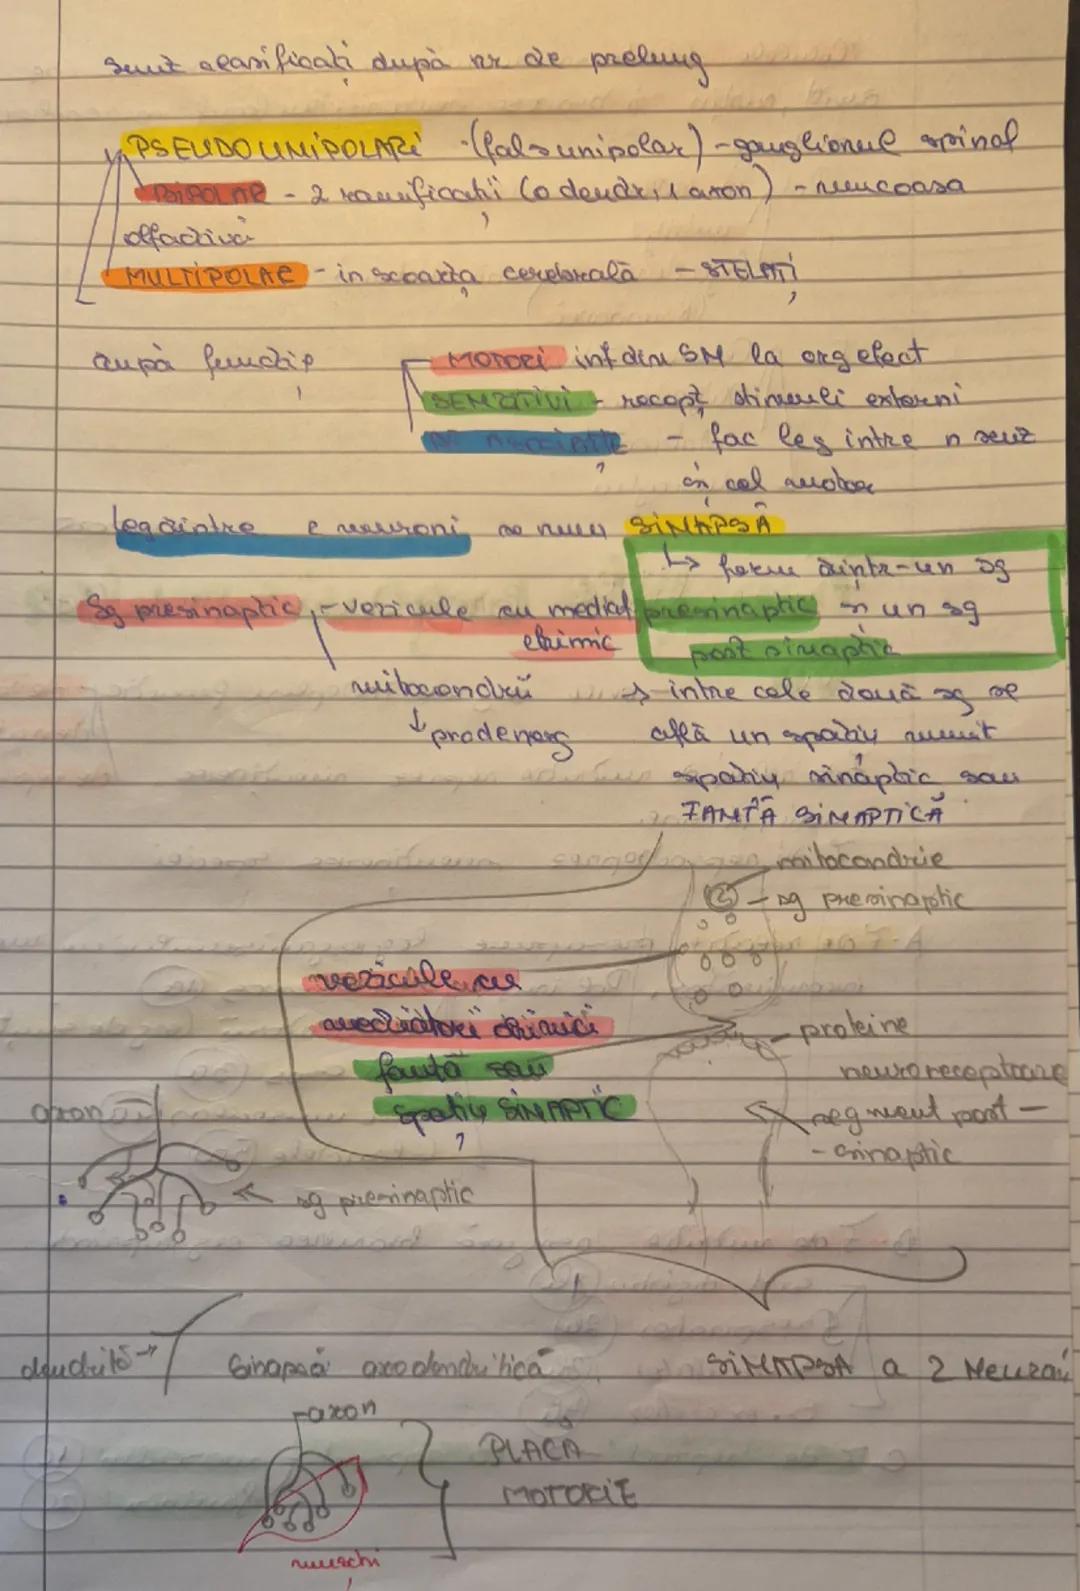 sunt clasificați după nr de prelung
PSEUDOUNIPOLARI -(fals unipolar) - ganglionul spinal
BIPOLAR - 2 ramificații (o dendr, 1 axon) - mucoasa
olfactivă
MULTIPOLAR - in scoarța cerebrală - STELAȚI
după funcție
MOTORI inf din SM la org efect
SENZITIVI - recept stimuli externi
DE ASOCIAȚIE - fac leg intre n senz
și cel motor
legă intre neuroni se num SINAPSĂ
↳ form dintr-un sg
presinaptic și un sg
post sinaptic
Sg presinaptic - vezicule cu mediat
chimic
mitocondrii
↓ prod energ
→ intre cele două sg se
află un spațiu numit
spațiu sinaptic sau
FANTĂ SINAPTICĂ
mitocondrie
sg presinaptic
vezicule cu
mediatori chimici
fantă sau
spațiu SINAPTIC
proteine
neuroreceptoare
segment post -
- sinaptic
axon
sg presinaptic
dendrită →
Sinapsă axodendritică
SINAPSA a 2 Neuroni
axon
PLACĂ
MOTORIE
mușchi